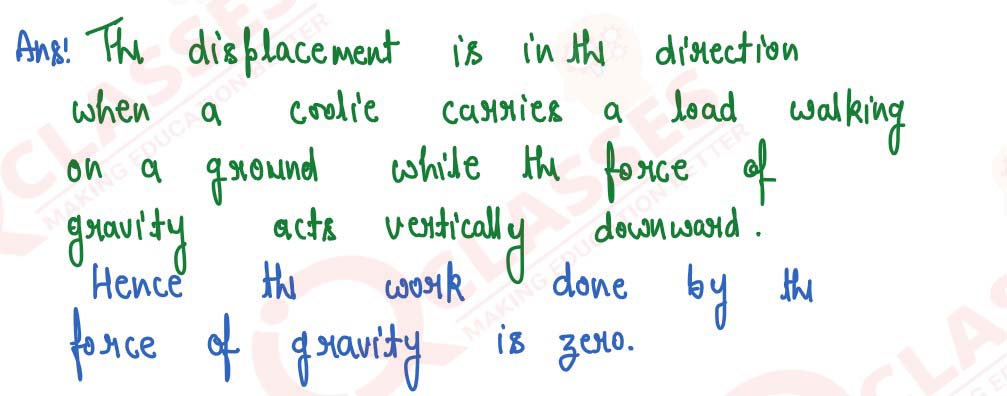 Ans! The displacement is in the direction
when a coolie carries a load walking
on a ground while the force of
gravity acts vertically downward.
Hence the work done by the
force of gravity is zero.
CLASSES
MAKING EDUCATION BETTER